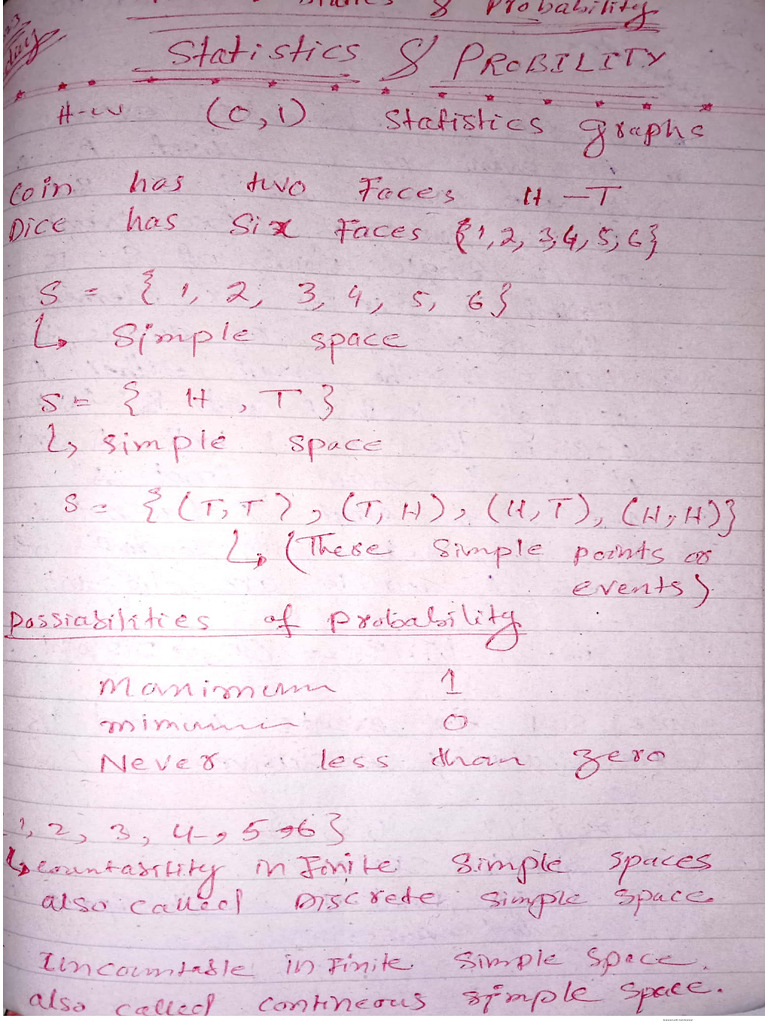 & Probability
Statistics & PROBILITY
H-w (0,1) Statistics graphs
Coin has two Faces H - T
Dice has Six Faces {1,2,3,4,5,6}
S = { 1, 2, 3, 4, 5, 6}
↳ Simple space
S = { H , T }
↳ simple space
S = {(T,T), (T,H), (H,T), (H,H)}
↳ (These Simple points or
events)
Possiabilities of probability
Manimum 1
mimumm 0
Never less than zero
1, 2, 3, 4, 5, 6}
↳ countability in Finite Simple Spaces
also called Discrete Simple Space.
Uncountable in Finite Simple Space.
also called contineous simple space.